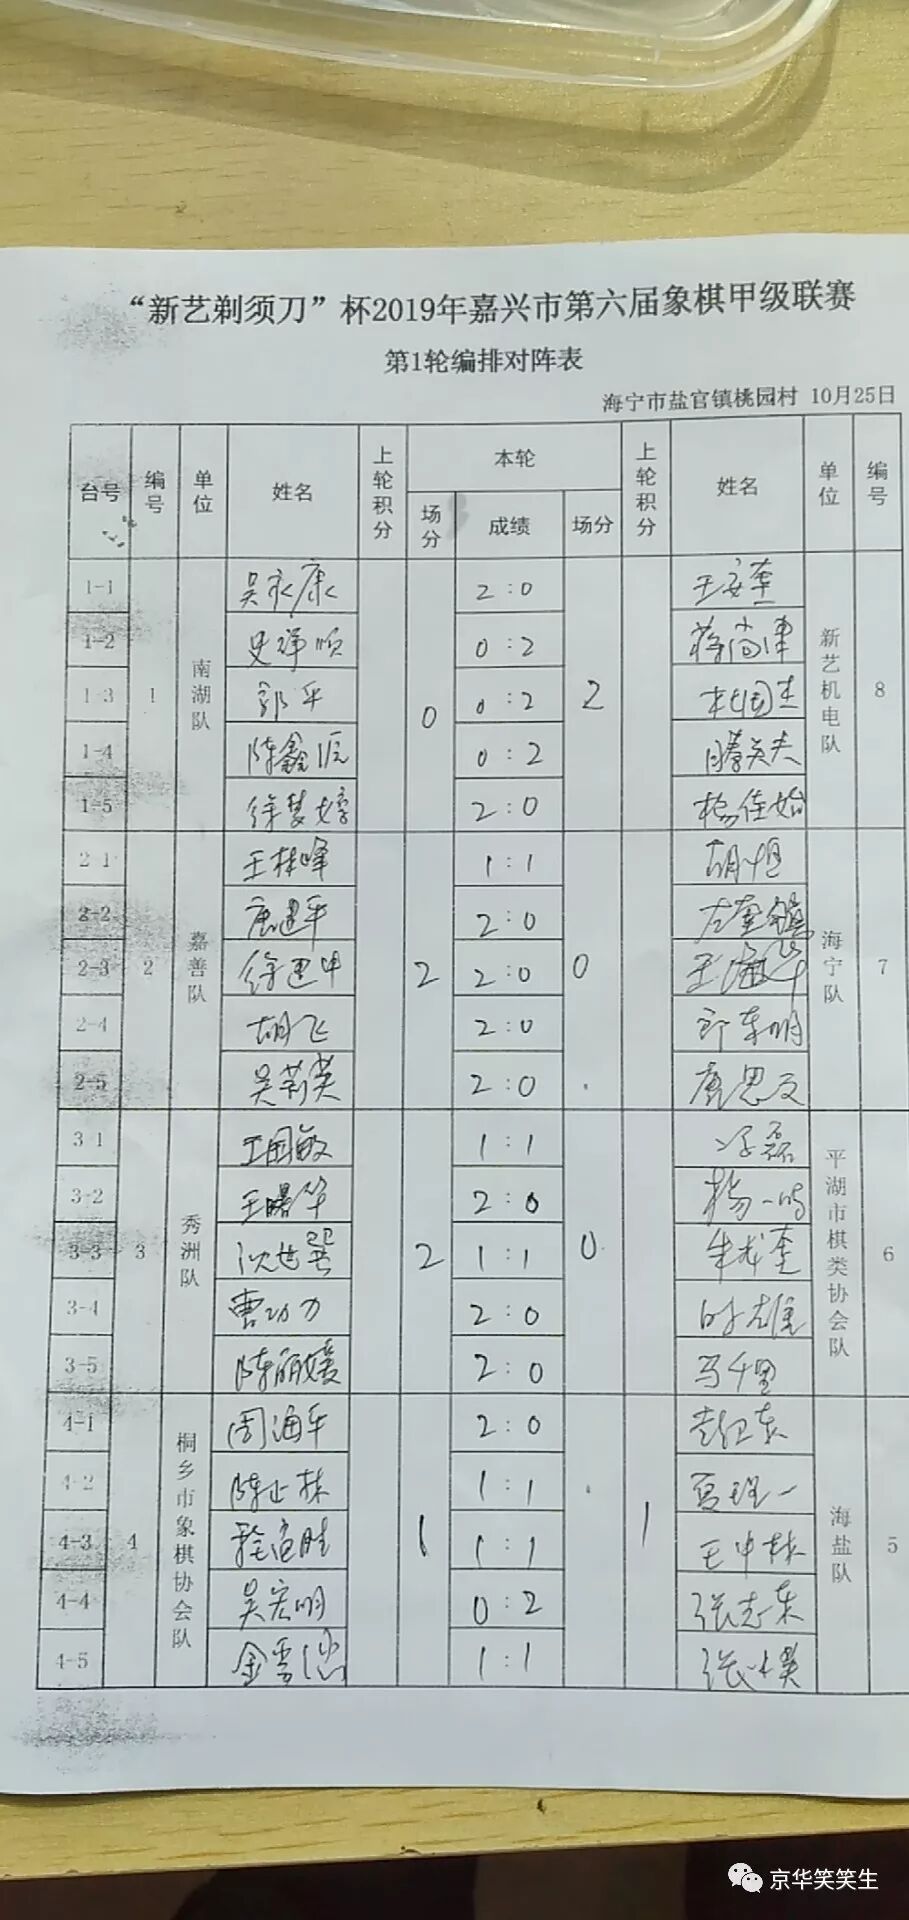 “新艺剃须刀”杯2019年嘉兴市第六届象棋甲级联赛
第1轮编排对阵表
海宁市盐官镇桃园村 10月25日
台号 编号 单位 姓名 上轮积分 本轮 上轮积分 姓名 单位 编号
场分 成绩 场分
1-1 吴永康 2:0 王安奎
1-2 0:2 蒋尚津
1-3 1 南湖队 郭平 0 0:2 2 杜国杰 新艺机电队 8
1-4 陈鑫泯 0:2 滕英夫
1-5 徐梦婷 2:0 杨佳始
2-1 王林峰 1:1 胡恒
2-2 唐建平 2:0 左奎镇
2-3 2 嘉善队 徐建甲 2 2:0 0 王海华 海宁队 7
2-4 胡飞 2:0 郭东明
2-5 吴莉英 2:0 唐思文
3-1 王国敏 1:1 冯磊
3-2 王曙华 2:0 杨一鸣
3-3 3 秀洲队 沈世巽 2 1:1 0 朱龙奎 平湖市棋类协会队 6
3-4 曹功力 2:0 时雄
3-5 陈丽媛 2:0 马千里
4-1 周海平 2:0 彭红东
4-2 陈正林 1:1 夏理一
4-3 4 桐乡市象棋协会队 1 1:1 1 王中林 海盐队 5
4-4 吴宏明 0:2 张志东
4-5 金雪 1:1 张
京华笑笑生